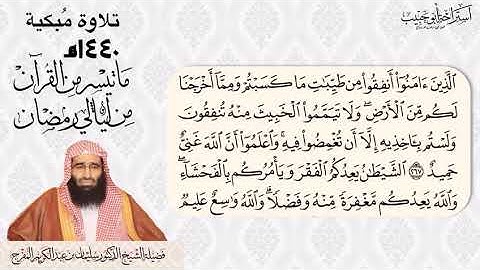 استراحة أبي حبيب
تلاوة مُبكية
١٤٤٠هـ
ما تيسر من القرآن
من ليالي رمضان
الَّذِينَ ءَامَنُوٓا۟ أَنفِقُوا۟ مِن طَيِّبَٰتِ مَا كَسَبْتُمْ وَمِمَّآ أَخْرَجْنَا
لَكُم مِّنَ ٱلْأَرْضِ ۖ وَلَا تَيَمَّمُوا۟ ٱلْخَبِيثَ مِنْهُ تُنفِقُونَ
وَلَسْتُم بِـَٔاخِذِيهِ إِلَّآ أَن تُغْمِضُوا۟ فِيهِ ۚ وَٱعْلَمُوٓا۟ أَنَّ ٱللَّهَ غَنِىٌّ
حَمِيدٌ ٢٦٧ ٱلشَّيْطَٰنُ يَعِدُكُمُ ٱلْفَقْرَ وَيَأْمُرُكُم بِٱلْفَحْشَآءِ ۖ
وَٱللَّهُ يَعِدُكُم مَّغْفِرَةً مِّنْهُ وَفَضْلًا ۗ وَٱللَّهُ وَٰسِعٌ عَلِيمٌ
فضيلة الشيخ الدكتور سليمان بن عبدالكريم المفرج